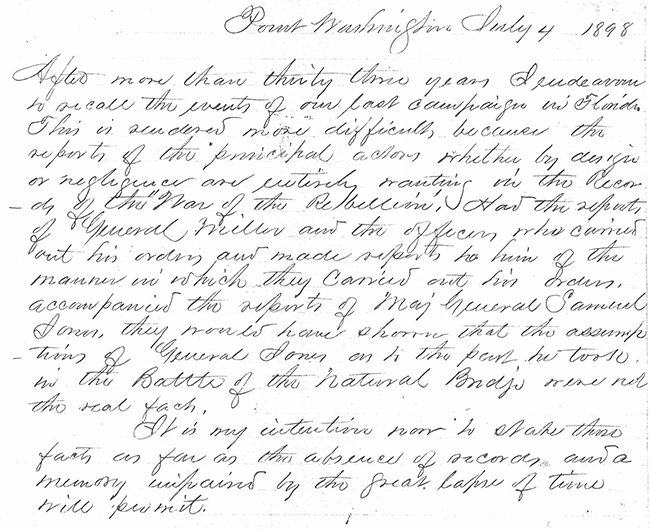 Point Washington July 4 1898
After more than thirty three years I endeavour
to recall the events of our last campaign in Florida.
This is rendered more difficult because the
reports of the principal actors whether by design
or negligence are entirely wanting in the Recor-
-ds of the "War of the Rebellion". Had the reports
of General Miller and the officers who carried
out his orders and made reports to him of the
manner in which they carried out his orders,
accompanied the reports of Maj General Samuel
Jones, they would have shown that the assump
-tions of General Jones as to the part he took
in the Battle of the Natural Bridge were not
the real facts.
It is my intention now to state those
facts as far as the absence of records and a
memory impaired by the great lapse of time
will permit.